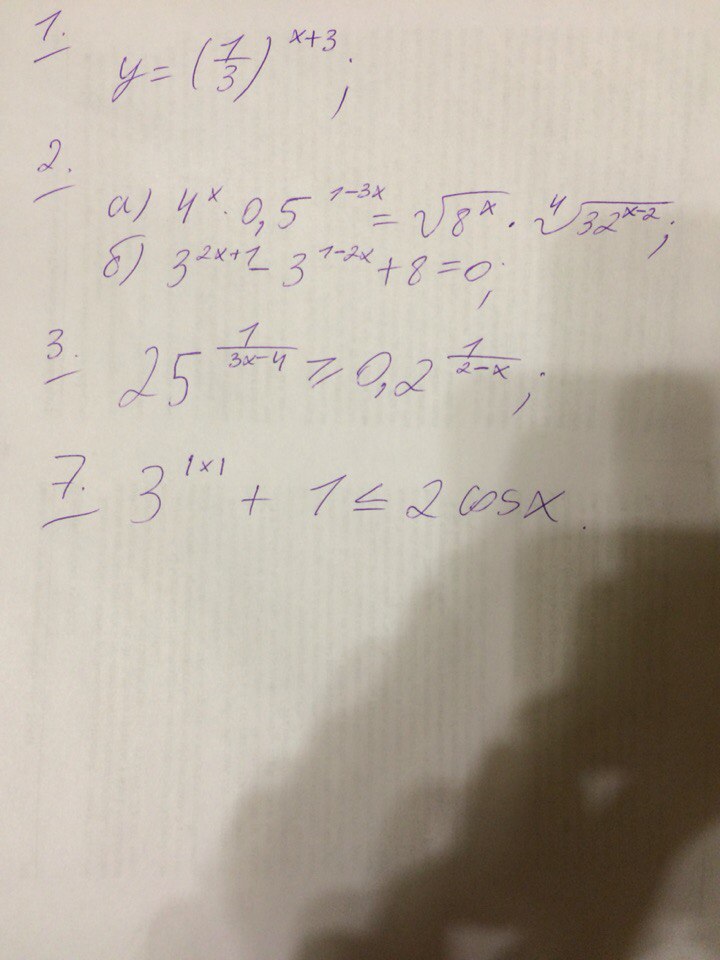 1.
y = (1/3)^(x+3);
2.
а) 4^x · 0,5^(1-3x) = √(8^x) · ⁴√(32^(x-2));
б) 3^(2x+1) - 3^(1-2x) + 8 = 0;
3. 25^(1/(3x-4)) ⩾ 0,2^(1/(2-x));
7. 3^|x| + 1 ≤ 2 cosx.